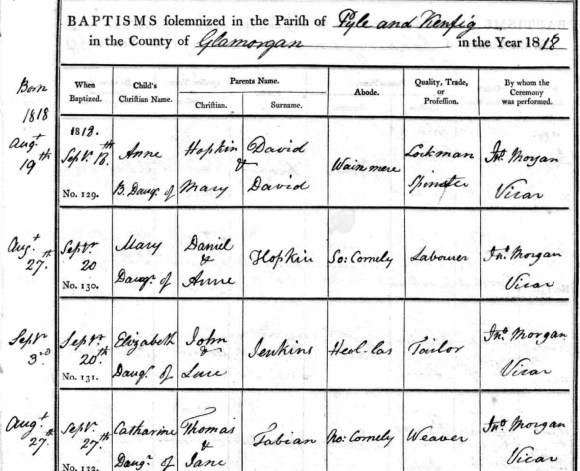 BAPTISMS solemnized in the Parish of Pyle and Kenfig
in the County of Glamorgan in the Year 1818
Born
1818
When Baptized. Child's Christian Name. Parents Name. Christian. Surname. Abode. Quality, Trade, or Profession. By whom the Ceremony was performed.
Augt 19th
1818. Septr. 18th Anne Hopkin & David Wainmere Lockman Jno. Morgan
No. 129. B. Daugr. of Mary David Spinster Vicar
Augt 27th
Septr 20 Mary Daniel & Hopkin So: Cornely Labourer Jno. Morgan
No. 130. Daugr. of Anne Vicar
Septr 3rd
Septr 20th Elizabeth John & Jenkins Heol-las Tailor Jno. Morgan
No. 131. Daugr. of Luce Vicar
Augt 27th
Septr. 27th Catharine Thomas & Fabian No: Cornely Weaver Jno. Morgan
No. 132. Daugr. of Jane Vicar